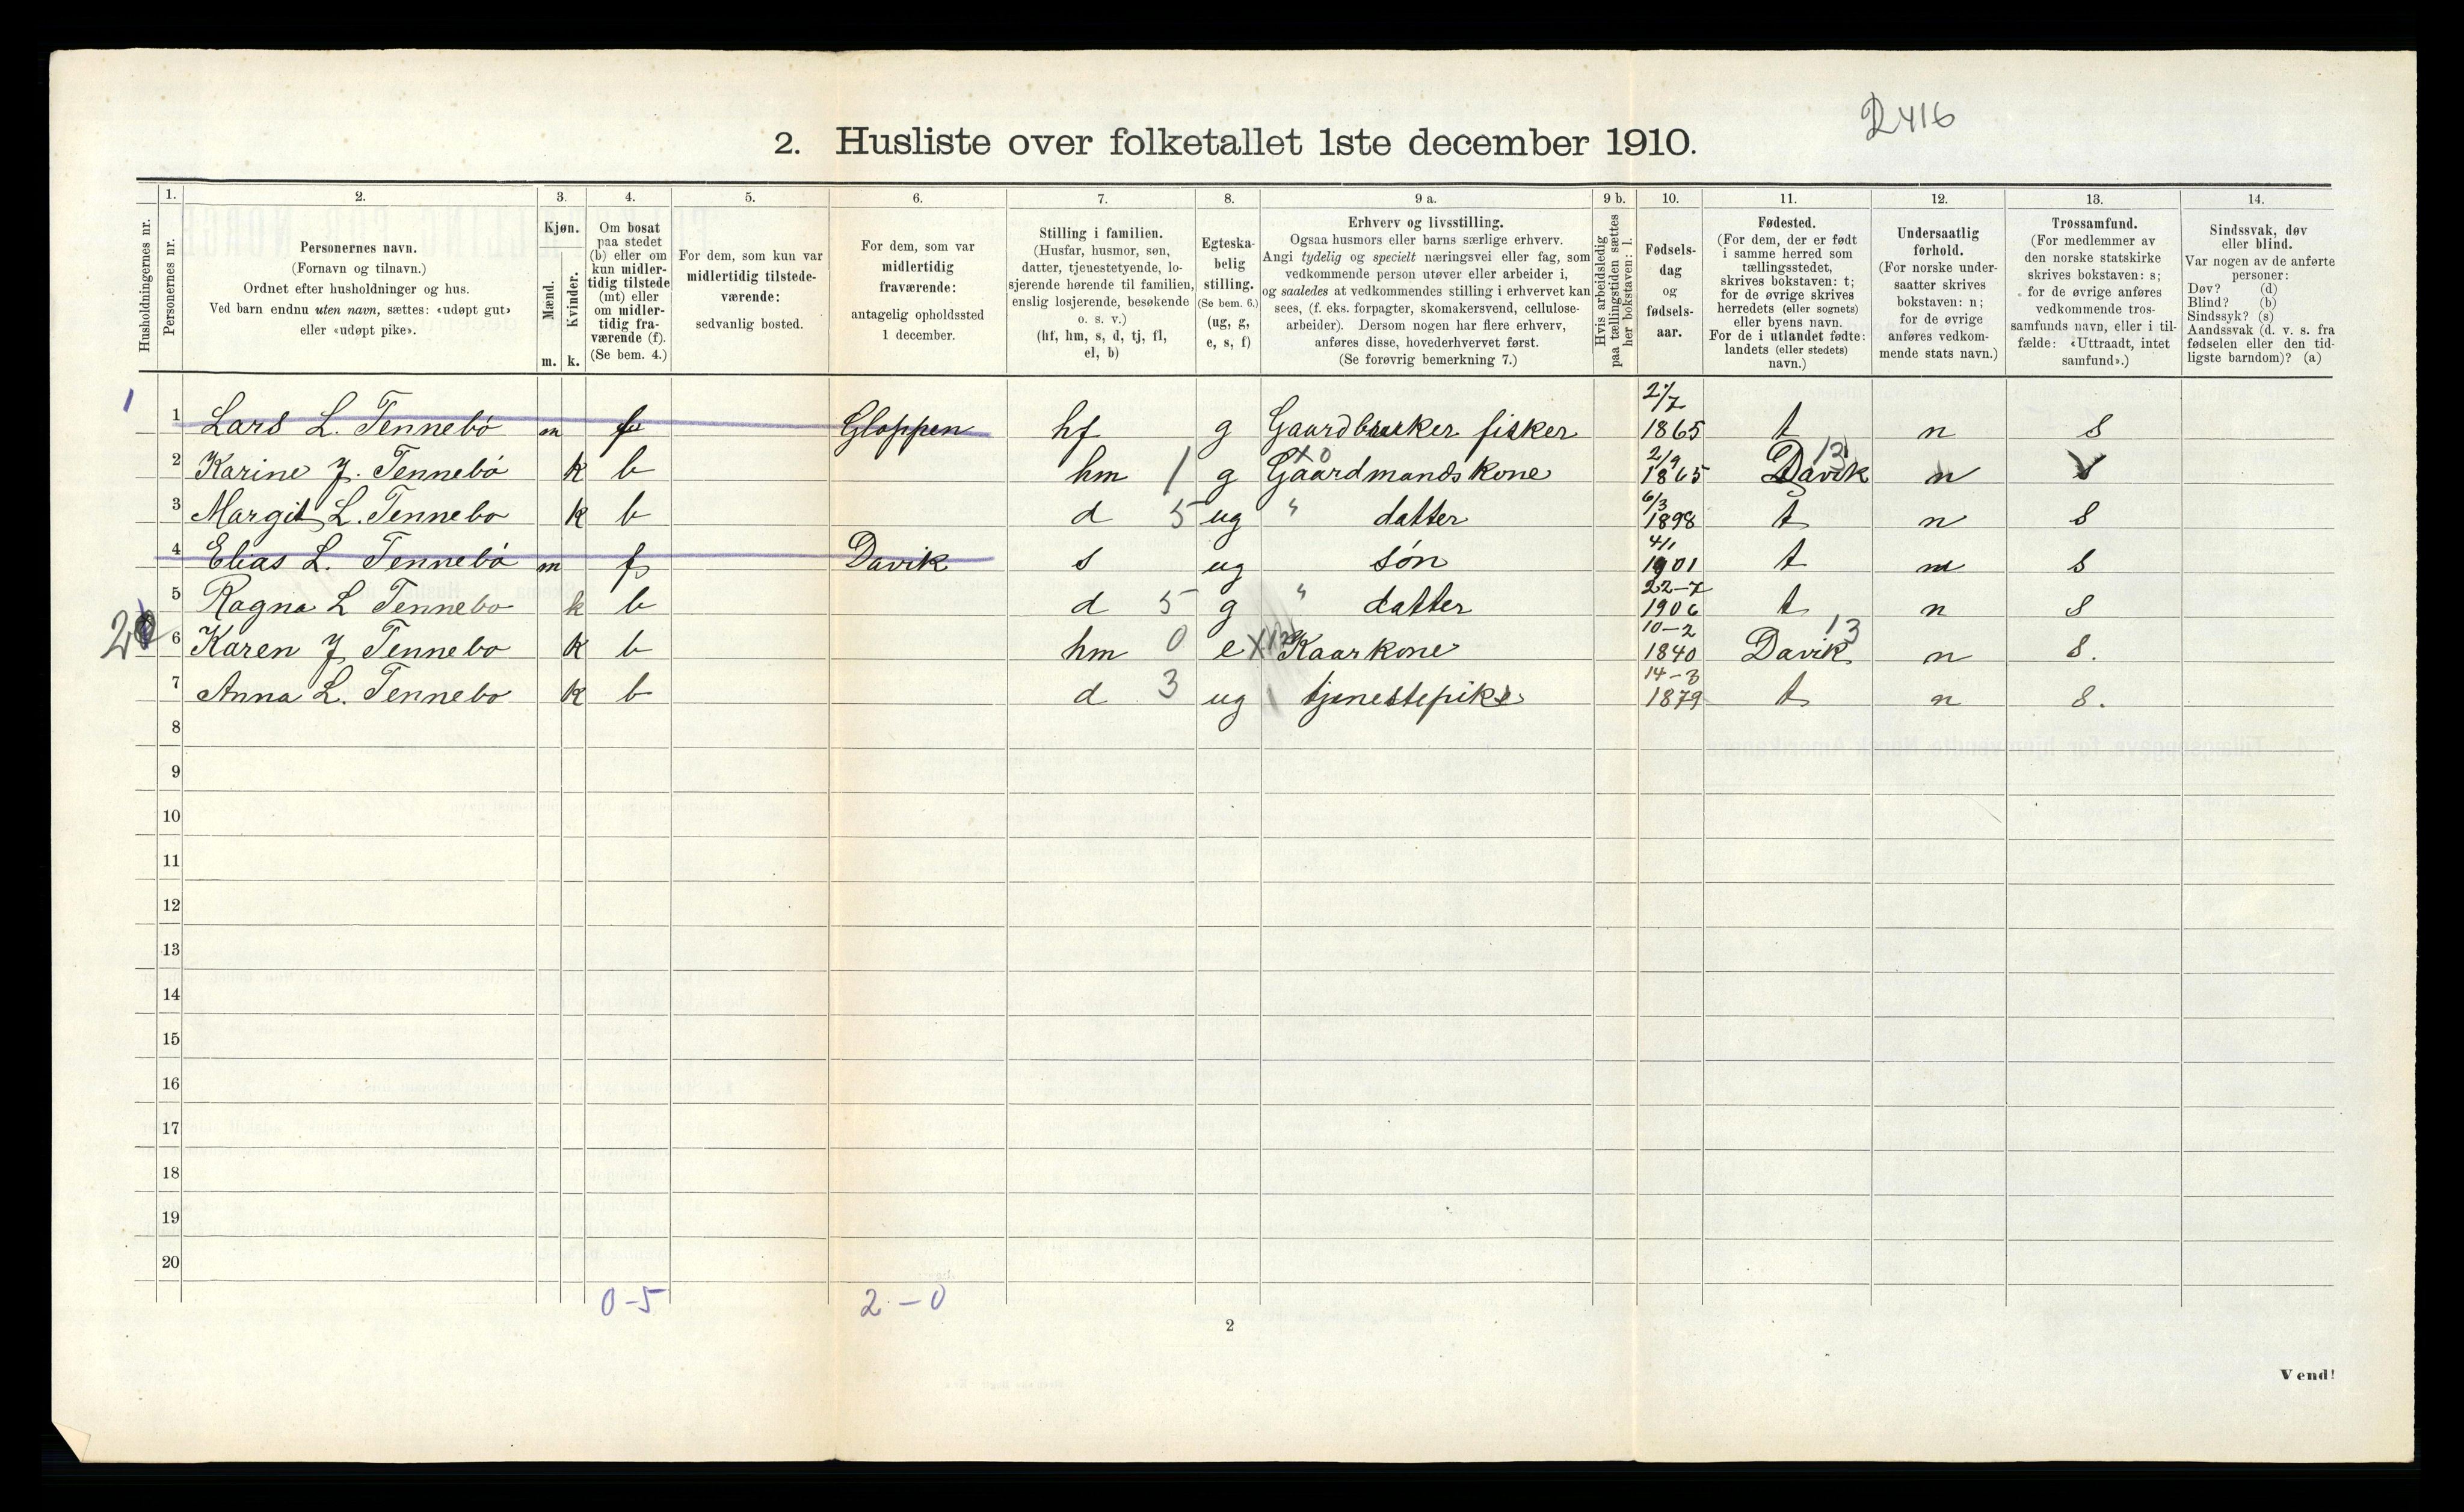 D 416
2. Husliste over folketallet 1ste december 1910.
Husholdningernes nr.
1. Personernes nr.
2.
Personernes navn.
(Fornavn og tilnavn.)
Ordnet efter husholdninger og hus.
Ved barn endnu uten navn, sættes: «udøpt gut»
eller «udøpt pike».
3.
Kjøn.
Mænd.
Kvinder.
m. k.
4.
Om bosat
paa stedet
(b) eller om
kun midler-
tidig tilstede
(mt) eller
om midler-
tidig fra-
værende (f).
(Se bem. 4.)
5.
For dem, som kun var
midlertidig tilstede-
værende:
sedvanlig bosted.
6.
For dem, som var
midlertidig
fraværende:
antagelig opholdssted
1 december.
7.
Stilling i familien.
(Husfar, husmor, søn,
datter, tjenestetyende, lo-
sjerende hørende til familien,
enslig losjerende, besøkende
o. s. v.)
(hf, hm, s, d, tj, fl,
el, b)
8.
Egteska-
belig
stilling.
(Se bem. 6.)
(ug, g,
e, s, f)
9 a.
Erhverv og livsstilling.
Ogsaa husmors eller barns særlige erhverv.
Angi tydelig og specielt næringsvei eller fag, som
vedkommende person utøver eller arbeider i,
og saaledes at vedkommendes stilling i erhvervet kan
sees, (f. eks. forpagter, skomakersvend, cellulose-
arbeider). Dersom nogen har flere erhverv,
anføres disse, hovederhvervet først.
(Se forøvrig bemerkning 7.)
9 b.
Hvis arbeidsledig
paa tællingstiden sættes
her bokstaven: l.
10.
Fødsels-
dag
og
fødsels-
aar.
11.
Fødested.
(For dem, der er født
i samme herred som
tællingsstedet,
skrives bokstaven: t;
for de øvrige skrives
herredets (eller sognets)
eller byens navn.
For de i utlandet fødte:
landets (eller stedets)
navn.)
12.
Undersaatlig
forhold.
(For norske under-
saatter skrives
bokstaven: n;
for de øvrige
anføres vedkom-
mende stats navn.)
13.
Trossamfund.
(For medlemmer av
den norske statskirke
skrives bokstaven: s;
for de øvrige anføres
vedkommende tros-
samfunds navn, eller i til-
fælde: «Uttraadt, intet
samfund».)
14.
Sindssvak, døv
eller blind.
Var nogen av de anførte
personer:
Døv? (d)
Blind? (b)
Sindssyk? (s)
Aandssvak (d. v. s. fra
fødselen eller den tid-
ligste barndom)? (a)
1 1 Lars L. Tennebö m f Gloppen hf g Gaardbruker fisker 2/7 1865 t n s
2 Karine J. Tennebö k b hm 1 g X0 Gaardmandskone 2/9 1865 Davik 13 n s
3 Margit L. Tennebo k b d 5 ug " datter 6/3 1898 t n s
4 Elias L. Tennebö m f Davik s ug sön 4/1 1901 t n s
5 Ragna L Tennebo k b d 5 g " datter 22-7 1906 t n s
2 6 Karen J Tennebo k b hm 0 e Kaarkone 10-2 1840 Davik 13 n s.
7 Anna L. Tennebo k b d 3 ug tjenestepike 14-3 1879 t n s.
8
9
10
11
12
13
14
15
16
17
18
19
20
0-5 2-0
2
Vend!